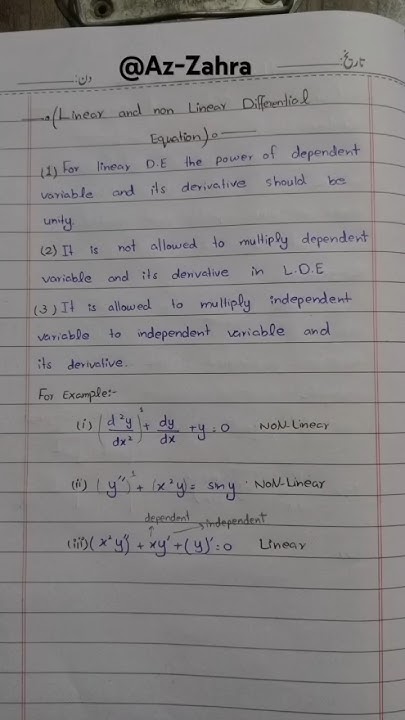 تاریخ:
دن:
@Az-Zahra
(Linear and non Linear Differential
Equation)
(1) For linear D.E the power of dependent
variable and its derivative should be
unity.
(2) It is not allowed to multiply dependent
variable and its derivative in L.D.E
(3) It is allowed to multiply independent
variable to independent variable and
its derivative.
For Example:-
(i) (d²y/dx²) + dy/dx + y = 0 NoN-Linear
(ii) (y'') + (x²y) = siny NoN-Linear
dependent independent
(iii) (x²y'') + xy' + (y)' = 0 Linear